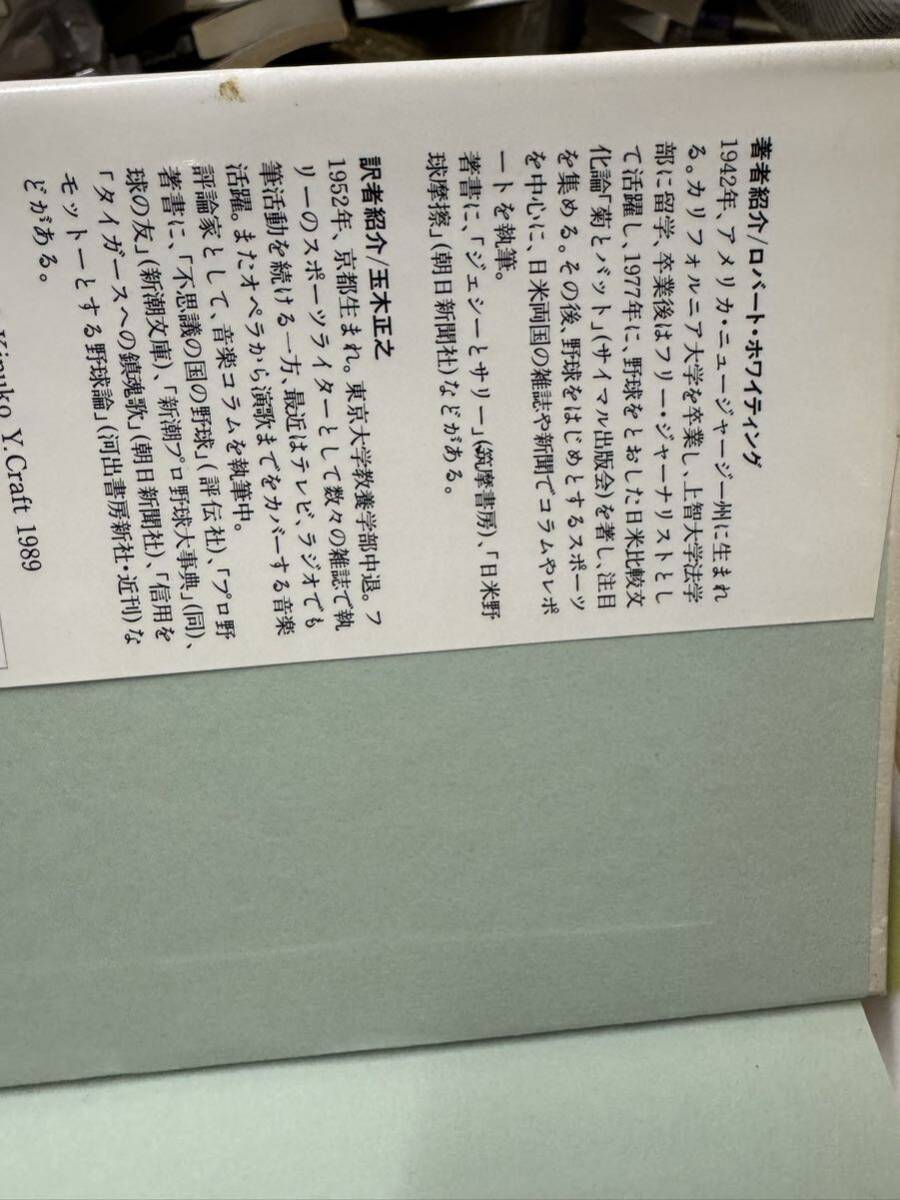 著者紹介/ロバート・ホワイティング
1942年、アメリカ・ニュージャージー州に生まれ
る。カリフォルニア大学を卒業し、上智大学法学
部に留学、卒業後はフリー・ジャーナリストとし
て活躍し、1977年に、野球をとおした日米比較文
化論「菊とバット」(サイマル出版会)を著し、注目
を集める。その後、野球をはじめとするスポーツ
を中心に、日米両国の雑誌や新聞でコラムやレポ
ートを執筆。
著書に、「ジェシーとサリー」(筑摩書房)、「日米野
球摩擦」(朝日新聞社)などがある。
訳者紹介/玉木正之
1952年、京都生まれ。東京大学教養学部中退。フ
リーのスポーツライターとして数々の雑誌で執
筆活動を続ける一方、最近はテレビ、ラジオでも
活躍。またオペラから演歌までをカバーする音楽
評論家として、音楽コラムを執筆中。
著書に、「不思議の国の野球」(評伝社)、「プロ野
球の友」(新潮文庫)、「新潮プロ野球大事典」(同)、
「タイガースへの鎮魂歌」(朝日新聞社)、「信用を
モットーとする野球論」(河出書房新社・近刊)な
どがある。
Kinuko Y.Craft 1989